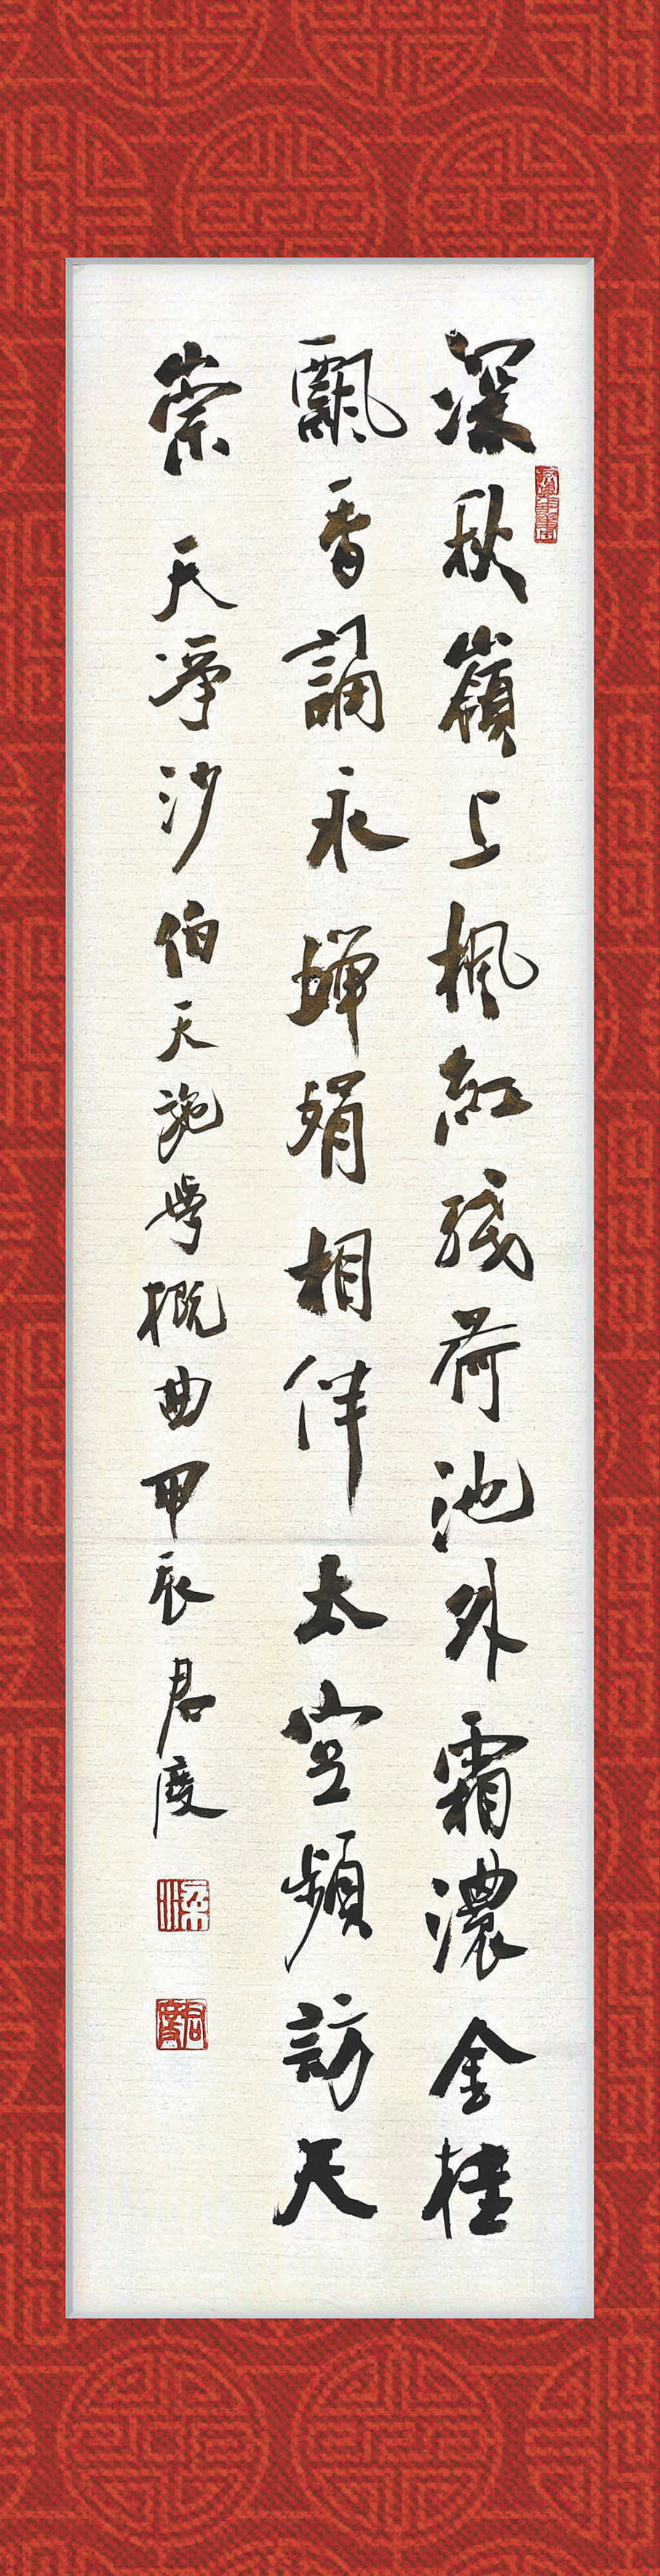 深秋嶺上楓紅残荷池外霜濃金桂
飄香誦永嬋娟相伴太空頻訪天
崇 天淨沙伯天學概曲甲辰君度
君度